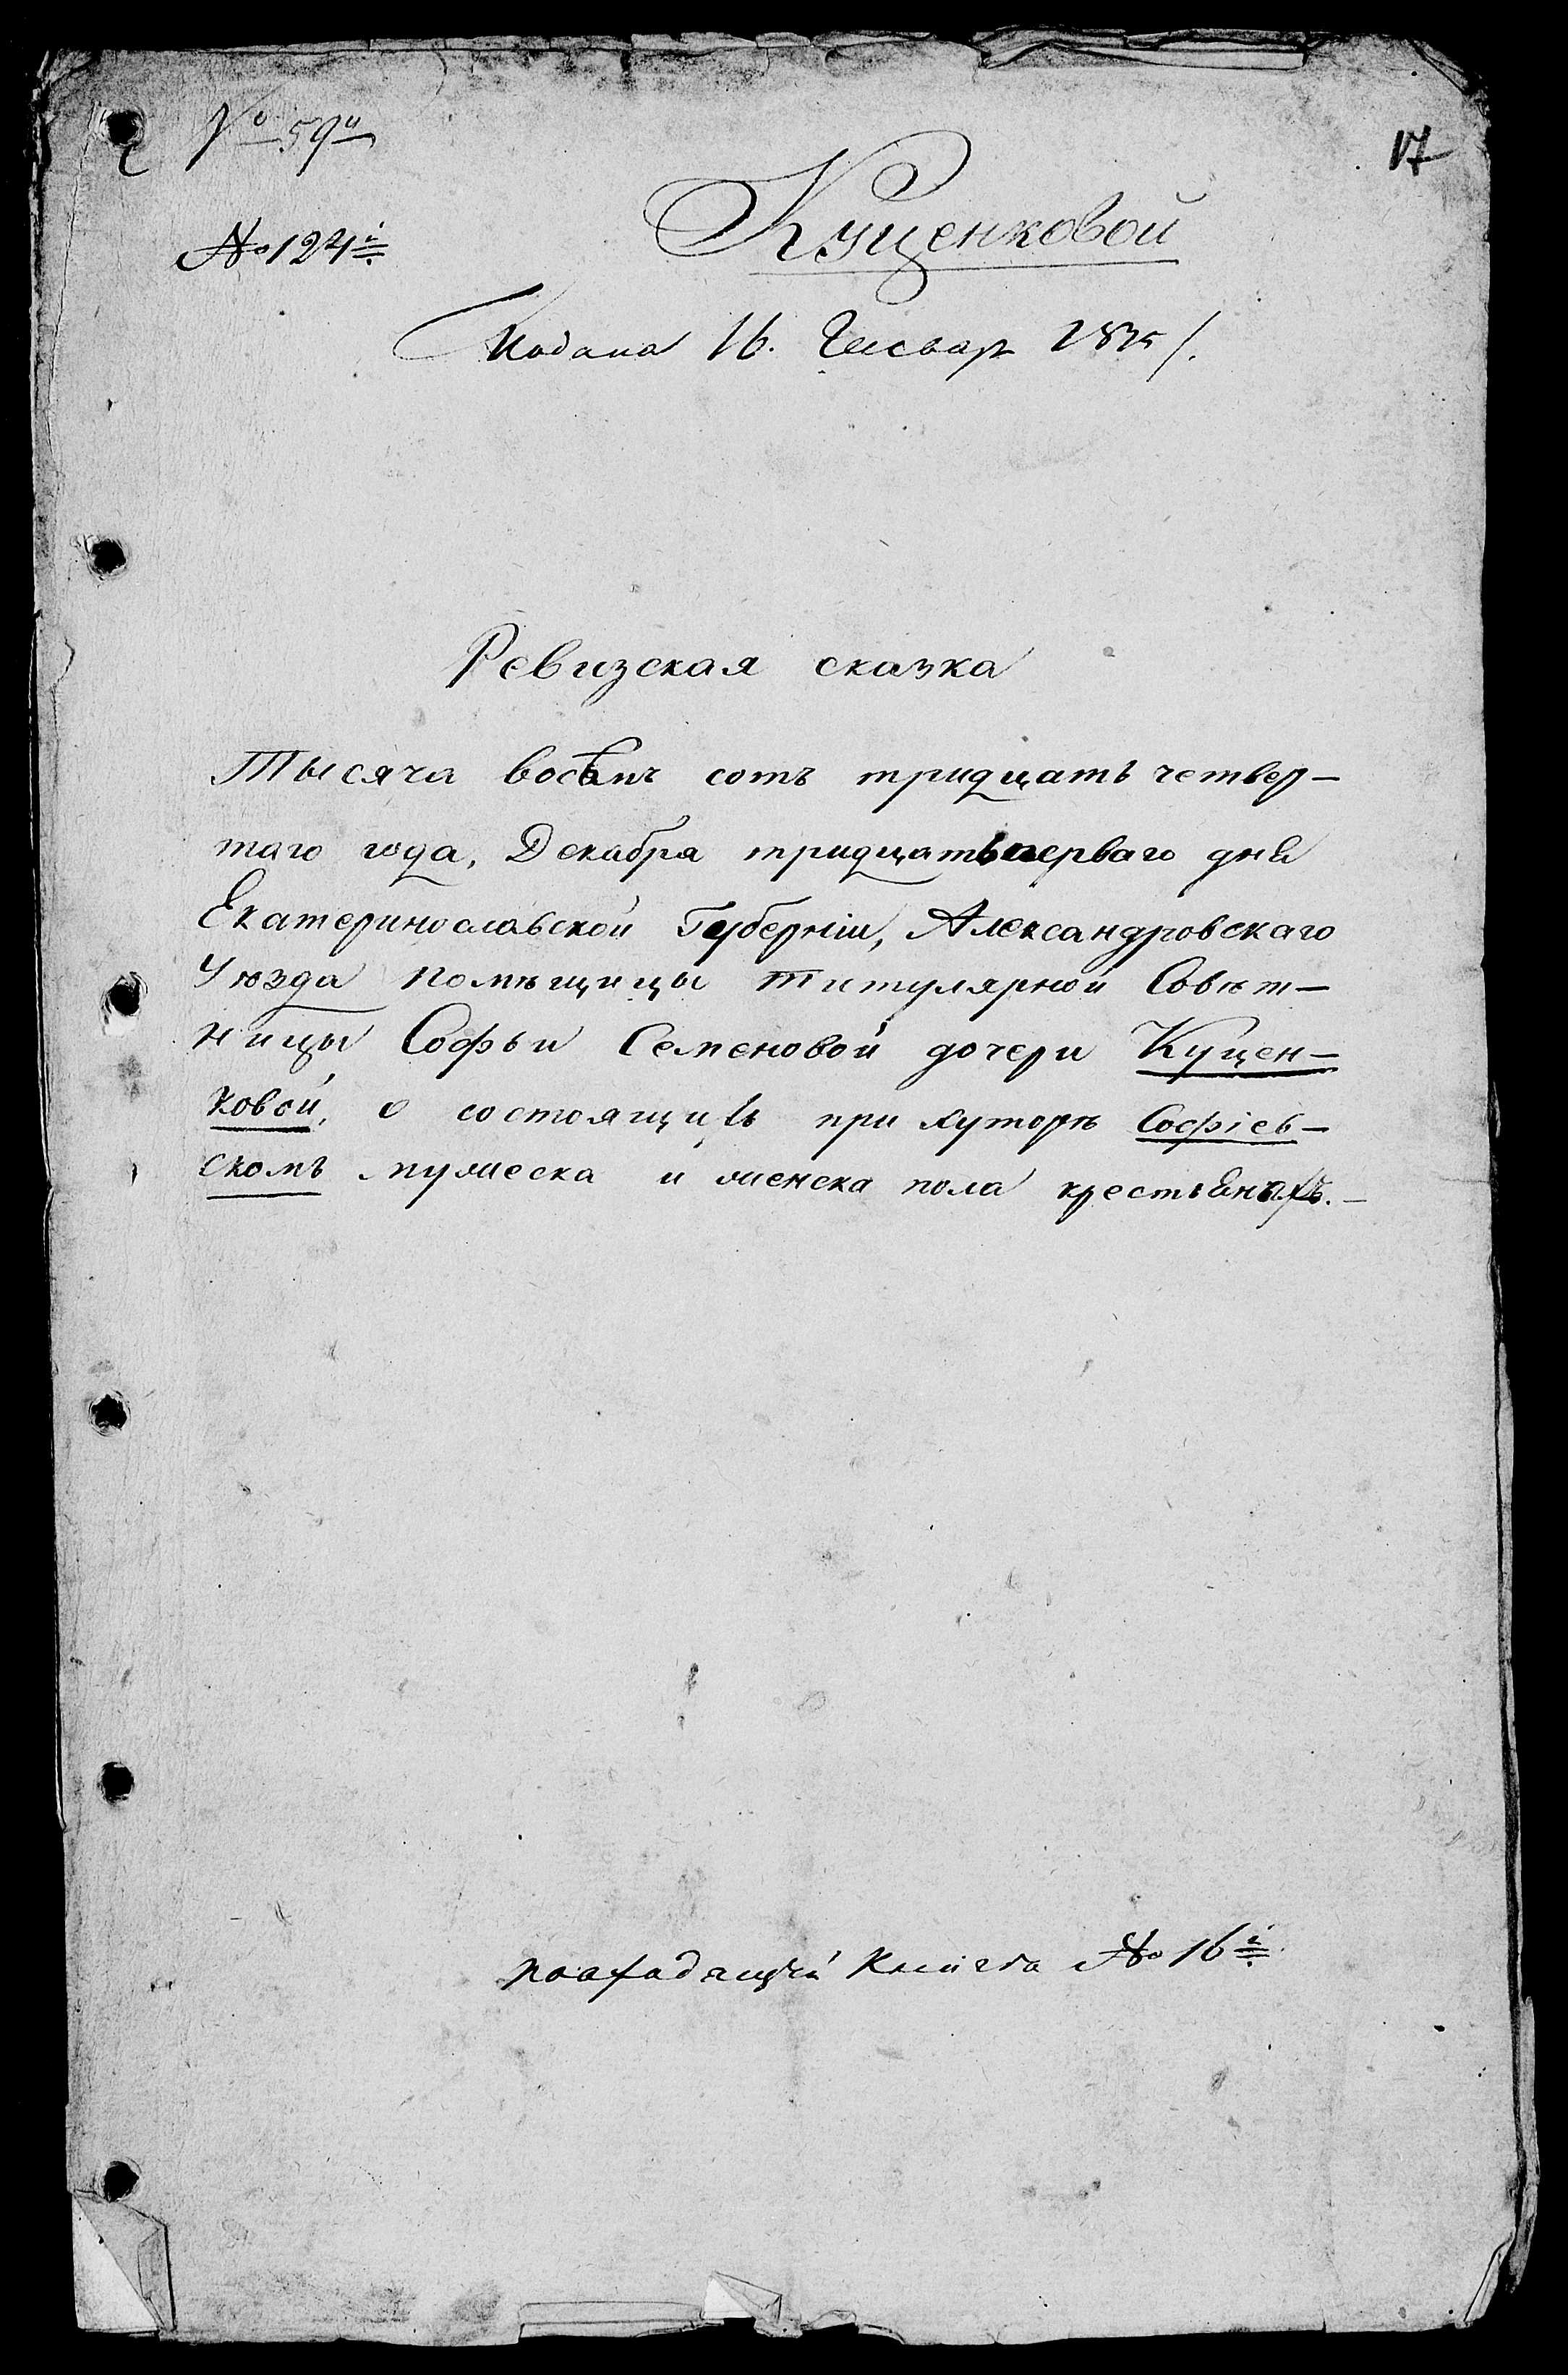 № 59й
17
№ 124й
Куценковой
Подана 16. Генвар 1835/.
Ревизская сказка
Тысяча восемъ сотъ тридцать четвер-
таго года, Декабра тридцать перваго дня
Екатеринославской Губерніи, Александровскаго
Уюзда Помѣщицы Титулярной Совѣт-
ницы Софьи Семеновой дочери Куцен-
ковой, о состоящихъ при хуторѣ Софіев-
скомъ мужеска и женска пола крестьянахъ.-
по входящей Книгѣ № 16й